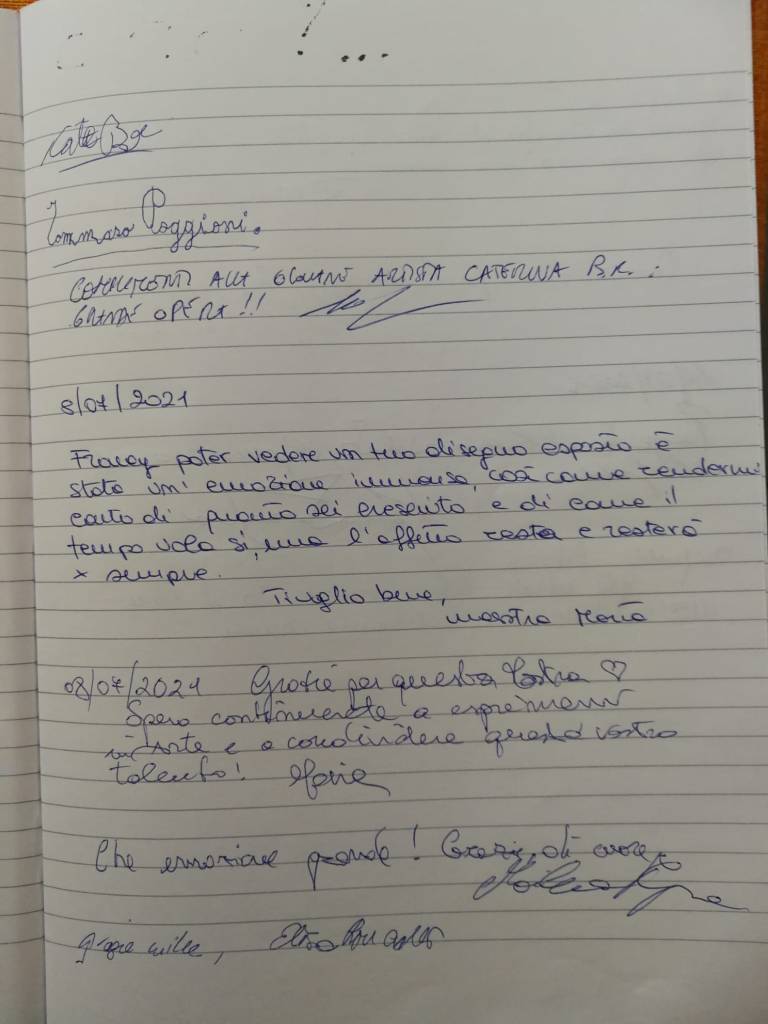 Tommaso Poggioni.
COMPLIMENTI ALLA GRANDE ARTISTA CATERINA B.R. :
GRANDE OPERA !!
8/07/2021
Francy poter vedere un tuo disegno esposto è
stato un' emozione immensa, così come rendermi
conto di quanto sei cresciuto e di come il
tempo vola si, ma l'affetto resta e resterà
x sempre.
Ti voglio bene,
maestra
08/07/2021 Grazie per questa mostra ♡
Spero continuerete a esprimervi
in Arte e a condividere questo vostro
talento!
Che emozione grande! Grazie di cuore
grazie mille,